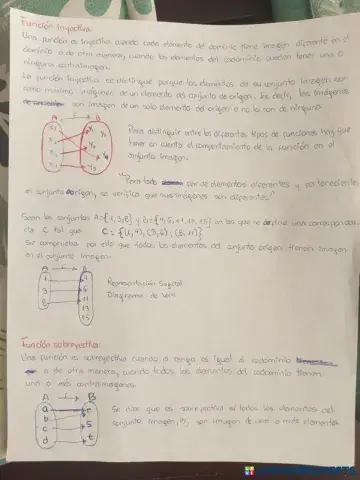 Función Inyectiva:
Una función es inyectiva cuando cada elemento de dominio tiene imagen diferente en el
dominio o de otra manera, cuando los elementos del codominio puedan tener una o
ninguna contraimagen.
La función inyectiva se distingue porque los elementos de su conjunto imagen son
como máximo imágenes de un elemento del conjunto de origen. Es decir, las imágenes
son imagen de un solo elemento del origen o no lo son de ninguno.
A B
Para distinguir entre los diferentes tipos de funciones hay que
tener en cuenta el comportamiento de la función en el
conjunto imagen.
"Para todo par de elementos diferentes y pertenecientes
al conjunto origen, se verifica que sus imágenes son diferentes."
Sean los conjuntos A= y B= en los que se define una correspondencia
C tal que C=
Se comprueba por ello que todos los elementos del conjunto origen tienen imagen
en el conjunto imagen.
A B
Representación Sagital
Diagrama de Venn
Función sobreyectiva:
Una función es sobreyectiva cuando el rango es igual al codominio
o de otra manera, cuando todos los elementos del codominio tienen
una o más contraimágenes.
A f B
a r
b
c s
d t
Se dice que es sobreyectiva si todos los elementos del
conjunto imagen, B, son imagen de uno o más elementos